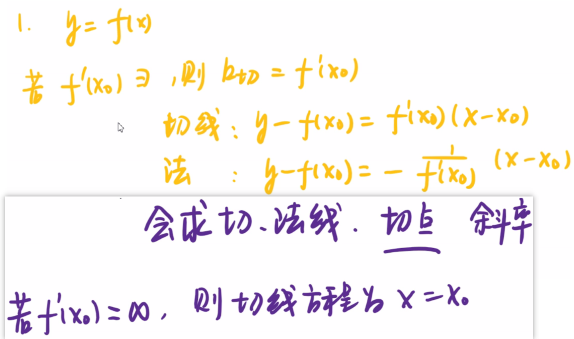 1. y = f(x)
若 f'(x₀) ∃ , 则 k切 = f'(x₀)
切线: y - f(x₀) = f'(x₀) (x - x₀)
法 : y - f(x₀) = - 1/f'(x₀) (x - x₀)
会求切、法线. 切点 斜率
若 f'(x₀) = ∞, 则切线方程为 x = x₀